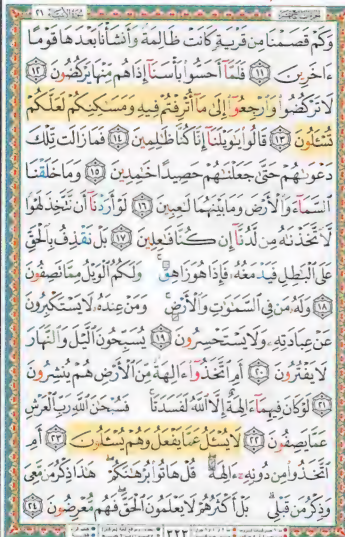 وَكَمْ قَصَمْنَا مِن قَرْيَةٍ كَانَتْ ظَالِمَةً وَأَنشَأْنَا بَعْدَهَا قَوْمًا
ءَاخَرِينَ ١١ فَلَمَّآ أَحَسُّوا۟ بَأْسَنَآ إِذَا هُم مِّنْهَا يَرْكُضُونَ ١٢
لَا تَرْكُضُوا۟ وَٱرْجِعُوٓا۟ إِلَىٰ مَآ أُتْرِفْتُمْ فِيهِ وَمَسَٰكِنِكُمْ لَعَلَّكُمْ
تُسْـَٔلُونَ ١٣ قَالُوا۟ يَٰوَيْلَنَآ إِنَّا كُنَّا ظَٰلِمِينَ ١٤ فَمَا زَالَت تِّلْكَ
دَعْوَىٰهُمْ حَتَّىٰ جَعَلْنَٰهُمْ حَصِيدًا خَٰمِدِينَ ١٥ وَمَا خَلَقْنَا
ٱلسَّمَآءَ وَٱلْأَرْضَ وَمَا بَيْنَهُمَا لَٰعِبِينَ ١٦ لَوْ أَرَدْنَآ أَن نَّتَّخِذَ لَهْوًا
لَّٱتَّخَذْنَٰهُ مِن لَّدُنَّآ إِن كُنَّا فَٰعِلِينَ ١٧ بَلْ نَقْذِفُ بِٱلْحَقِّ
عَلَى ٱلْبَٰطِلِ فَيَدْمَغُهُۥ فَإِذَا هُوَ زَاهِقٌ ۚ وَلَكُمُ ٱلْوَيْلُ مِمَّا تَصِفُونَ
١٨ وَلَهُۥ مَن فِى ٱلسَّمَٰوَٰتِ وَٱلْأَرْضِ ۚ وَمَنْ عِندَهُۥ لَا يَسْتَكْبِرُونَ
عَنْ عِبَادَتِهِۦ وَلَا يَسْتَحْسِرُونَ ١٩ يُسَبِّحُونَ ٱلَّيْلَ وَٱلنَّهَارَ
لَا يَفْتُرُونَ ٢٠ أَمِ ٱتَّخَذُوٓا۟ ءَالِهَةً مِّنَ ٱلْأَرْضِ هُمْ يُنشِرُونَ
٢١ لَوْ كَانَ فِيهِمَآ ءَالِهَةٌ إِلَّا ٱللَّهُ لَفَسَدَتَا ۚ فَسُبْحَٰنَ ٱللَّهِ رَبِّ ٱلْعَرْشِ
عَمَّا يَصِفُونَ ٢٢ لَا يُسْـَٔلُ عَمَّا يَفْعَلُ وَهُمْ يُسْـَٔلُونَ ٢٣ أَمِ
ٱتَّخَذُوا۟ مِن دُونِهِۦٓ ءَالِهَةً ۖ قُلْ هَاتُوا۟ بُرْهَٰنَكُمْ ۖ هَٰذَا ذِكْرُ مَن مَّعِىَ
وَذِكْرُ مَن قَبْلِى ۗ بَلْ أَكْثَرُهُمْ لَا يَعْلَمُونَ ٱلْحَقَّ ۖ فَهُم مُّعْرِضُونَ ٢٤
٣٢٣